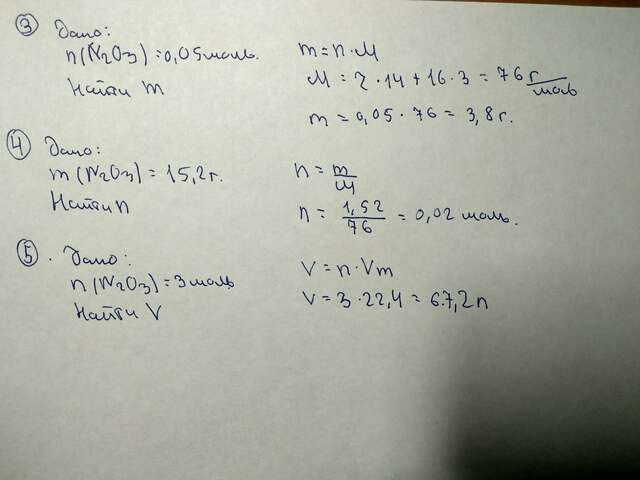 ③ Дано:
n(N2O3)=0,05моль. m=n·M
Найти m M=2·14+16·3=76 г/моль
m=0,05·76=3,8г.
④ Дано:
m(N2O3)=15,2г. n=m/M
Найти n n=1,52/76=0,02 моль.
⑤. Дано:
n(N2O3)=3моль V=n·Vm
Найти V V=3·22,4=67,2л